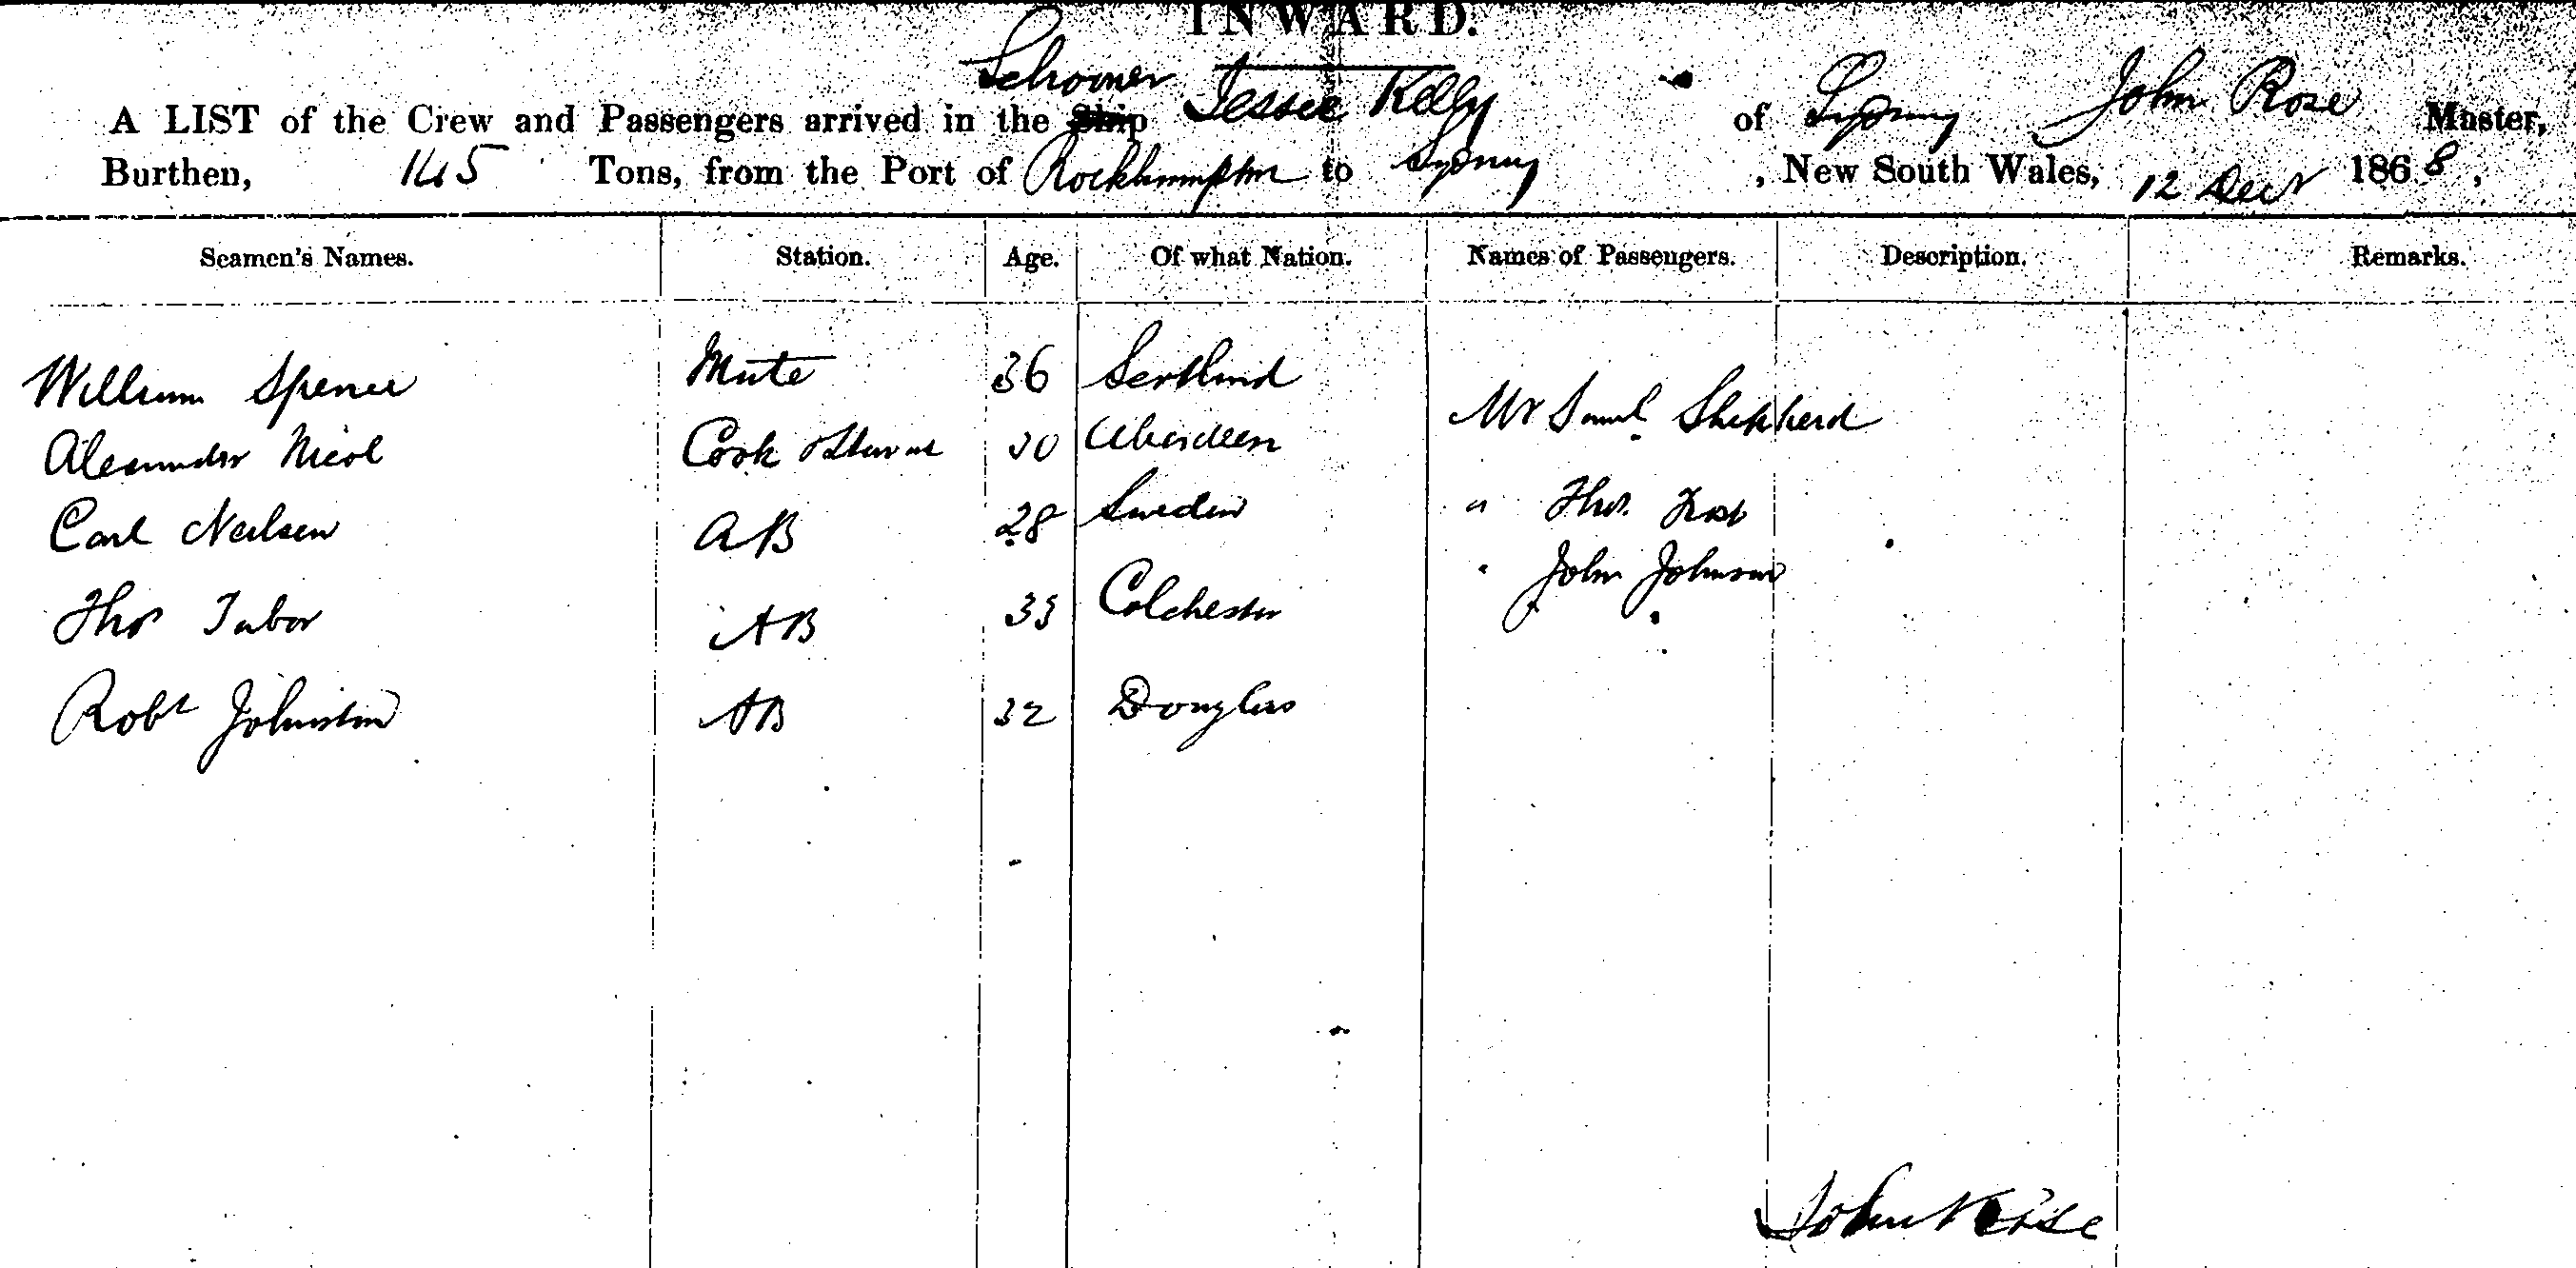 INWARD.
Schooner
A LIST of the Crew and Passengers arrived in the Ship Jessie Kelly of Sydney John Rose Master,
Burthen, 145 Tons, from the Port of Rockhampton to Sydney, New South Wales, 12 Decr 1868,
Seamen's Names. Station. Age. Of what Nation. Names of Passengers. Description. Remarks.
William Spence Mate 36 Scotland
Mr Saml Shepherd
Alexander Nicol Cook & Steward 30 Aberdeen
Carl Neilsen AB 28 Sweden " Thos. Frost
" John Johnson
Thos Tabor AB 33 Colchester
Robt Johnston AB 32 Douglas
John Rose